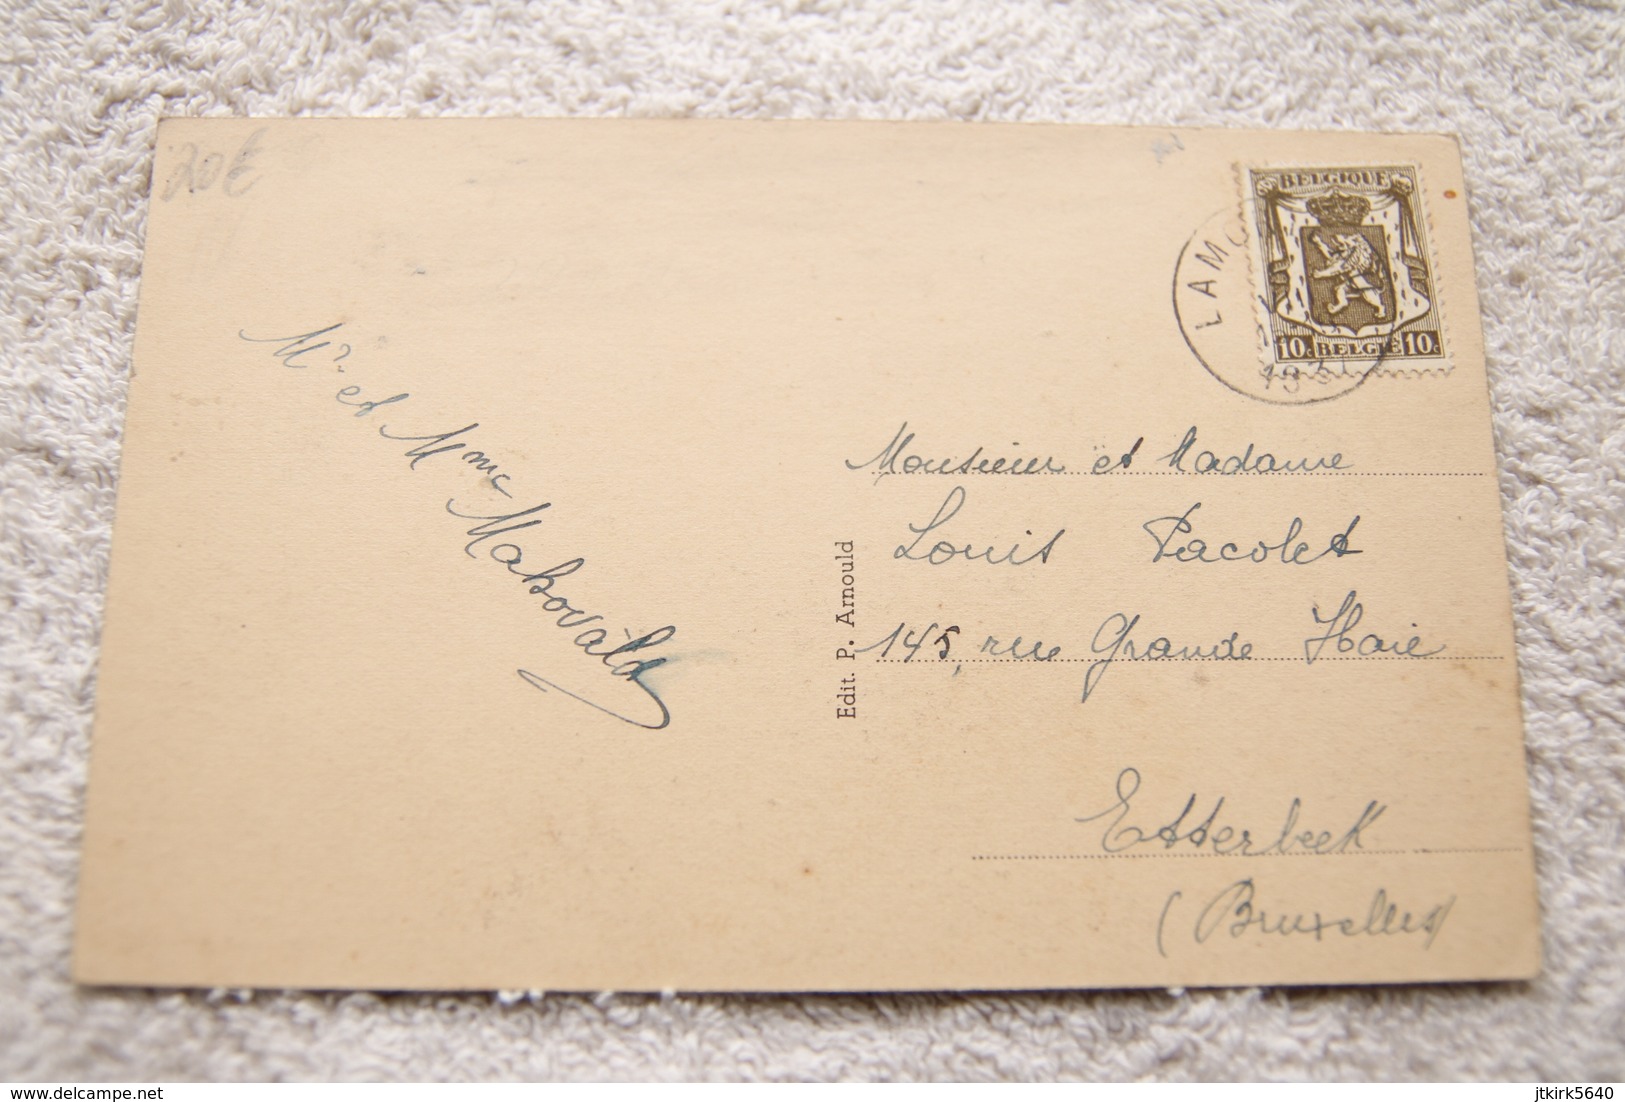 20€
BELGIQUE
LAMO
193
10c BELGIE 10c
Mr et Mme Mahovald
Edit. P. Arnould
Monsieur et Madame
Louis Pacolet
145, rue Grande Haie
Etterbeek
(Bruxelles)
www.delcampe.net
jtkirk5640